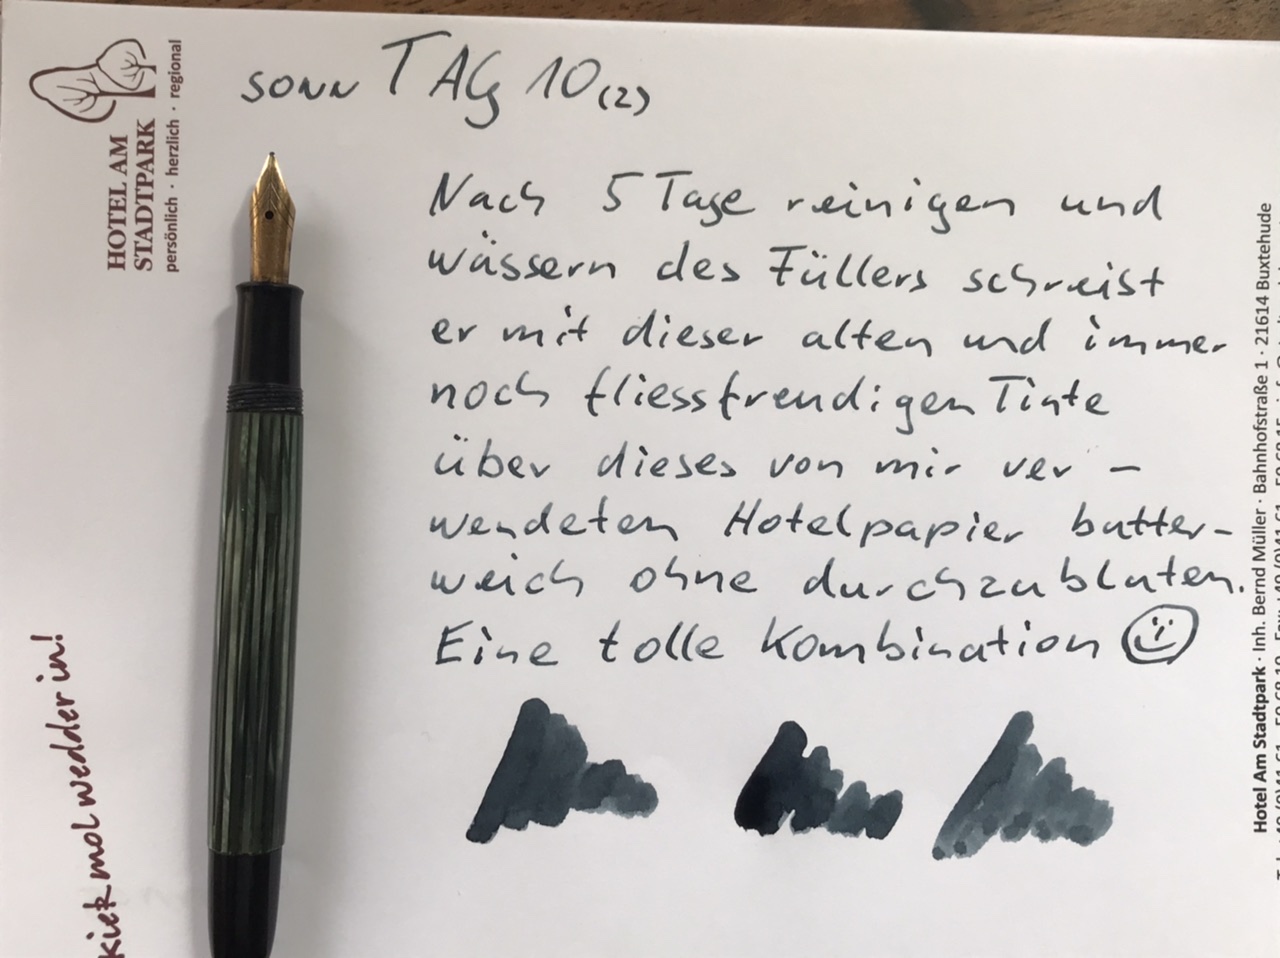 HOTEL AM
STADTPARK
persönlich · herzlich · regional
sonn TAG 10 (2)
Nach 5 Tage reinigen und
wässern des Füllers schreist
er mit dieser alten und immer
noch fliessfreudigen Tinte
über dieses von mir ver –
wendeten Hotelpapier butter–
weich ohne durchzubluten.
Eine tolle Kombination ☺
kiek mol wedder in!
Hotel Am Stadtpark · Inh. Bernd Müller · Bahnhofstraße 1 · 21614 Buxtehude